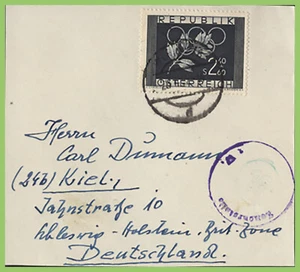 REPUBLIK
S 2.40 + 60
ÖSTERREICH
Herrn
Carl Dümann
(24b) Kiel,
Jahnstraße 10
Schleswig-Holstein, Brit. Zone
Deutschland.